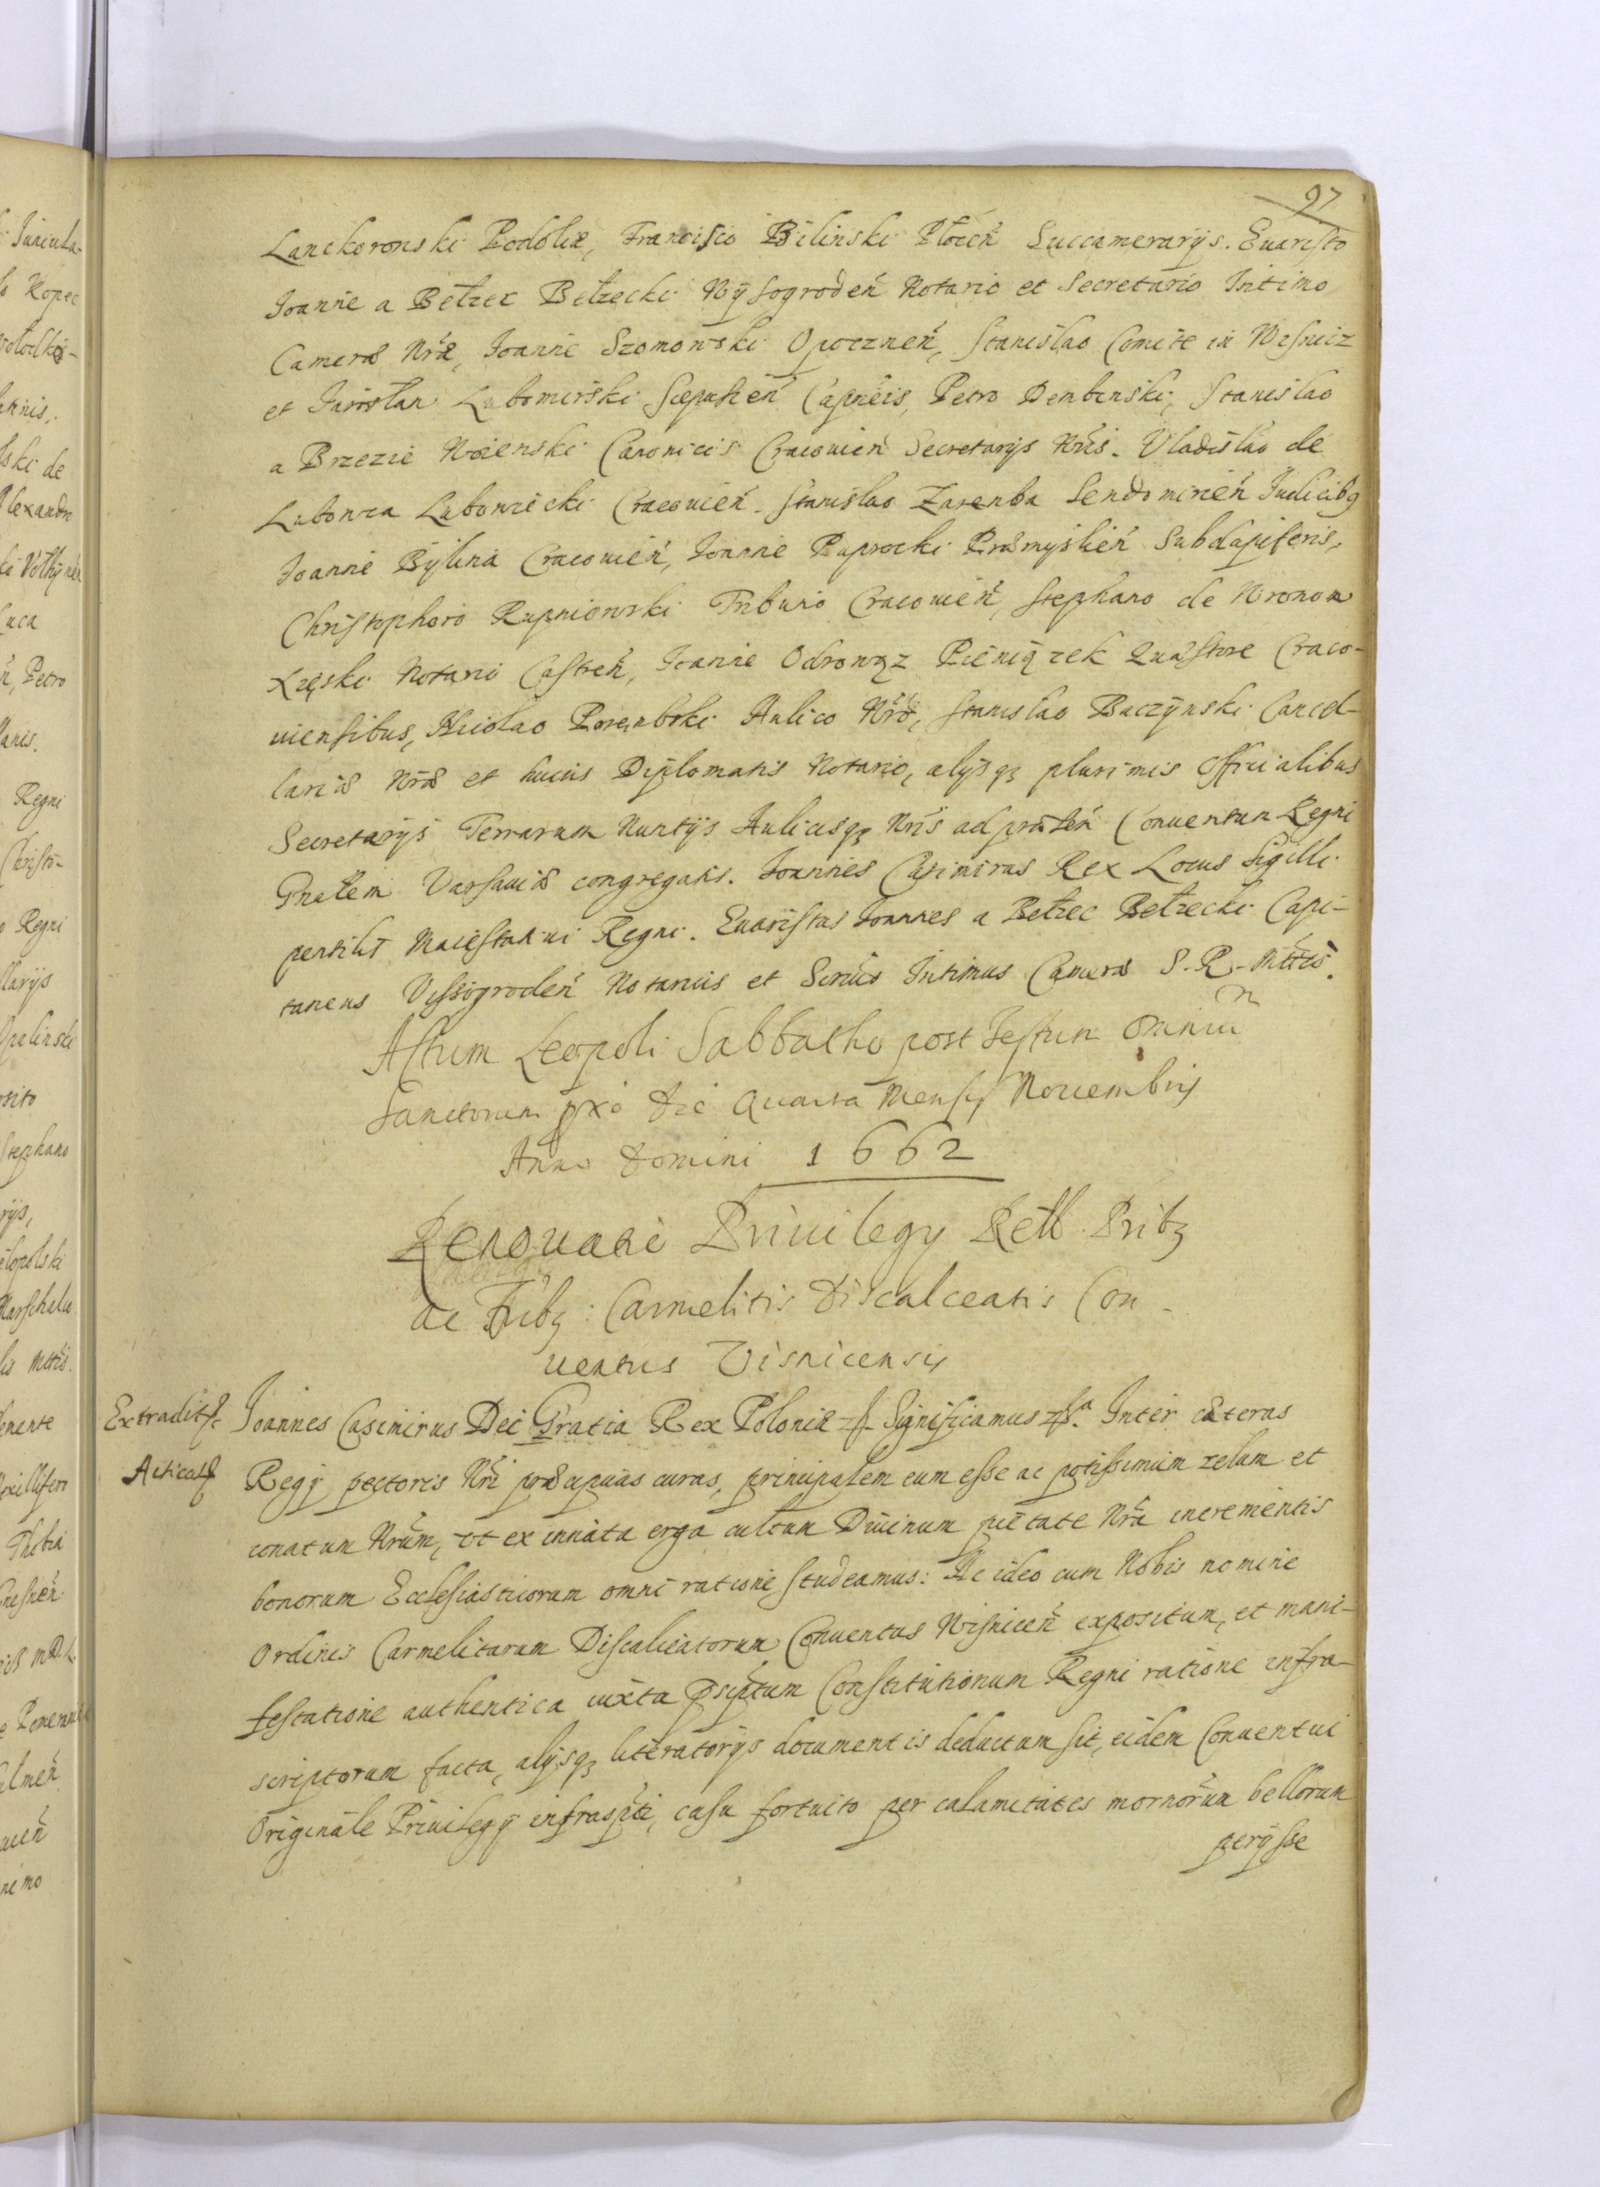 97
Lanckoronski Podoliæ, Francisco Bilinski Płoceń Succamerarÿs. Euaristo
Joanne a Bełzec Bełzecki Wÿsogrodeń Notario et Secretario Intimo
Cameræ Nr̃æ, Joanne Szomowski Opoczneń, Stanislao Comite in Wisnicz
et Jarosłau Lubomirski Scepusień Capneis, Petro Dembinski, Stanislao
a Brzezie Canonicis Cracouień Secretarÿs Nr̃is. Vladislao de
Labonza Cracouień. Stanislao Zaremba Sendomirień Iudicibq
Joanne Bÿlina Cracouień, Joanne Paprocki Præmyslień Subdapiferis,
Christophoro Rupniowski Tribuno Cracouień, Stephano de Wronow
Notario Castreń, Joanne Odrowąz Pieniązek Quæstore Craco-
uiensibus, Nicolao Porembski Aulico Nr̃o, Stanislao Buczÿnski Cancel-
lariæ Nr̃æ et huius Diplomatis Notario, alÿsqz plurimis Officialibus
Secretarÿs Terrarum Nuntÿs Aulicisqz Nr̃is ad præseń Conuentum Regni
Gnalem Varsauiæ congregatis. Joannes Casimirus Rex Locus Sigilli
pensilis Maiestatici Regni. Euaristus Joannes a Bełzec Bełzecki Capi-
taneus Vissogrodeń Notarius et Scrius Intimus Cameræ S. R. Mttis.
Actum Leopoli Sabbatho post Festum Omnium
Sanctorum pxo die Quarta Mensis Nouembris
Anno Domini 1662
Renouatio Priuilegÿ Rell Pribz
ac Fribz: Carmelitis Discalceatis Con-
uentus Visnicensis
Extradits
Joannes Casimirus Dei Gratia Rex Poloniæ Significamus Inter cæteras
Acticat
Regÿ pectoris Nr̃i præcipuas curas, principalem eum esse ac potissimum zelum et
conatum Nr̃um, vt ex innata erga cultum Diuinum pietate Nr̃a incrementis
bonorum Ecclesiasticorum omni ratione studeamus: Ac ideo cum Nobis nomine
Ordinis Carmelitarum Discalceatorum Conuentus Wisniceń expositum, et mani-
festatione authentica iuxta Constitutionum Regni ratione infra-
scriptorum facta, alÿsqz literatorÿs documentis deductum sit, eidem Conuentui
Originale Priuilegÿ infrasp̃ti, casu fortuito per calamitates bellorum
perÿsse